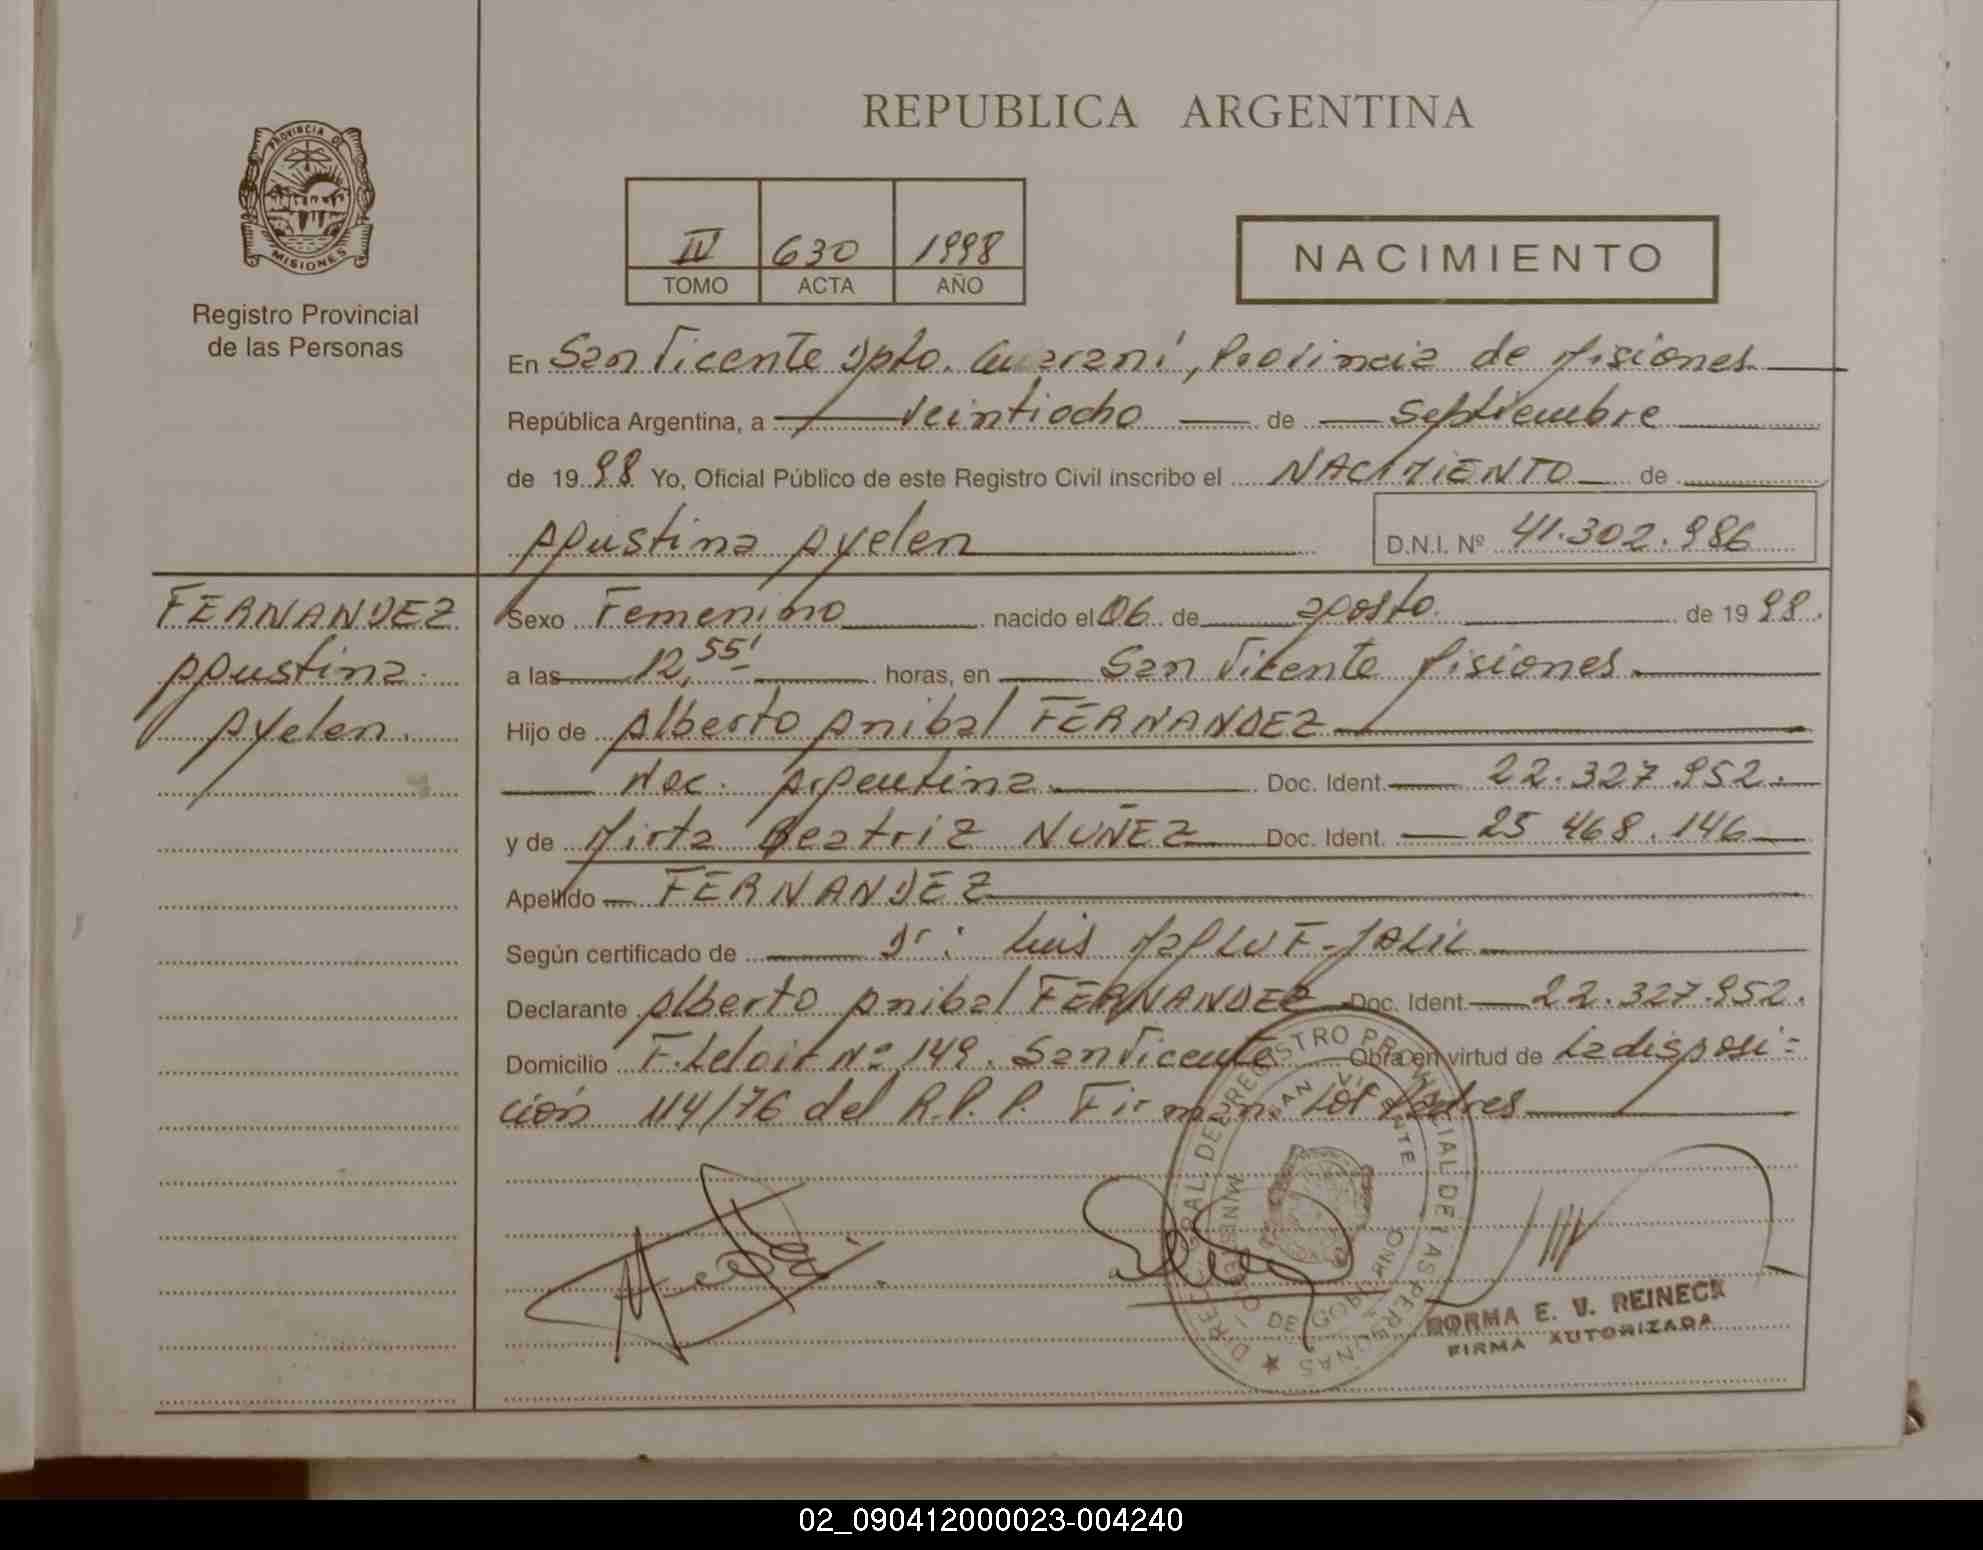 REPUBLICA ARGENTINA
PROVINCIA DE
MISIONES
Registro Provincial
de las Personas
IV 630 1998
TOMO ACTA AÑO
NACIMIENTO
En San Vicente Dpto. Guaraní, Provincia de Misiones
República Argentina, a veintiocho de Septiembre
de 1998 Yo, Oficial Público de este Registro Civil inscribo el NACIMIENTO de
Agustina Ayelen D.N.I. Nº 41.302.986
FERNANDEZ
Agustina
Ayelen.
Sexo Femenino nacido el 06 de agosto de 1998.
a las 12,55' horas, en San Vicente Misiones
Hijo de Alberto Anibal FERNANDEZ
Nac. Argentina Doc. Ident. 22.327.952.
y de Mirta Beatriz NUÑEZ Doc. Ident. 25 468.146
Apellido FERNANDEZ
Según certificado de Dr: Luis
Declarante Alberto Anibal FERNANDEZ Doc. Ident. 22.327.952.
Domicilio F. Leloir Nº 149. San Vicente Obra en virtud de La disposi=
ción 114/76 del R.P.P. Firman Los Padres
DIRECC. GRAL. DEL REGISTRO PROVINCIAL DE LAS PERSONAS
SAN VICENTE
MINISTERIO DE GOBIERNO
NORMA E. V. REINECK
FIRMA AUTORIZADA
02_090412000023-004240